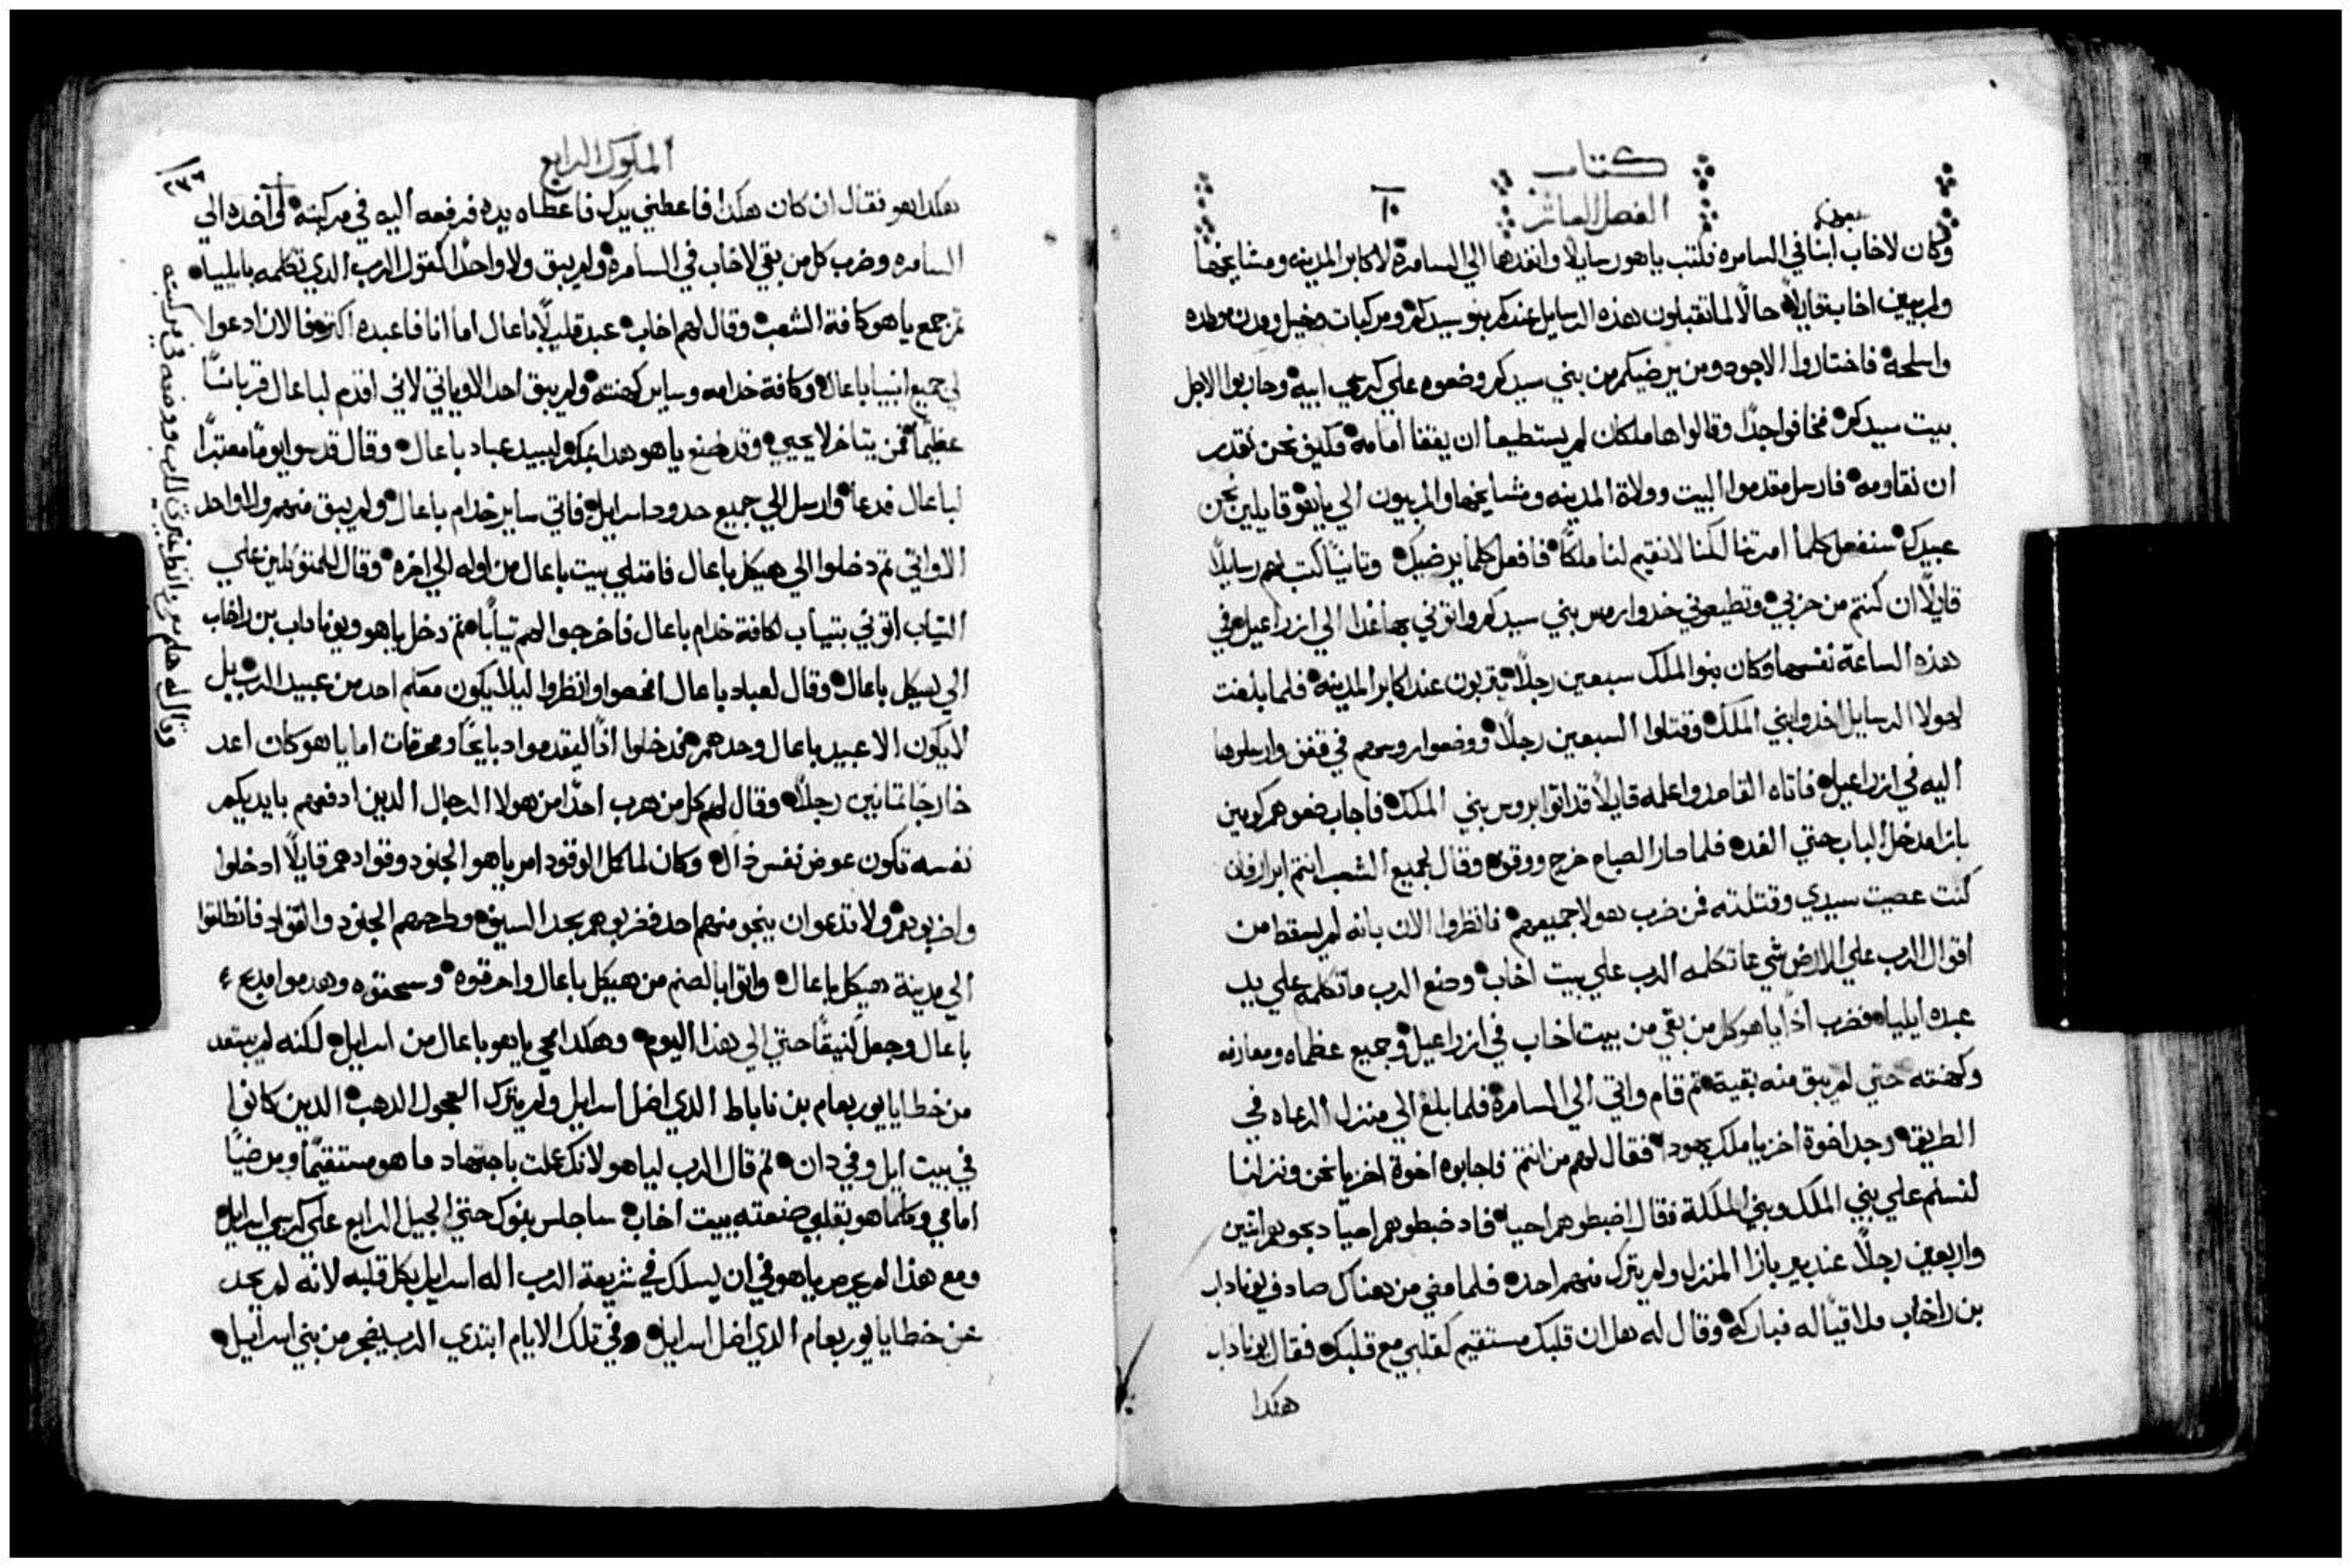 كتاب
الفصل العاشر
١٠
سبعون
وكان لاخاب ابنا في السامره فكتب ياهو رسايلًا وانفدها الي السامرة لاكابر المدينه ومشايخها
ولمربيين اخاب قايلاً حالًا لما تقبلون هذه الرسايل عندكم بنو سيدكم ومركبات وخيل ومدن موطده
واسلحة فاختاروا الاجود ومن يرضيكم من بني سيدكم وضعوه علي كرسي ابيه وحاربوا لاجل
بيت سيدكم فخافوا جدًا وقالوا هاملكان لم يستطيعا ان يقفا امامه فكيف نحن نقدر
ان نقاومه فارسل مقدموا البيت وولاة المدينه ومشايخها والمربيون الي ياهو قايلين نحن
عبيدك سنفعل كلما امرتنا لكننا لا نقيم لنا ملكًا فافعل كلما يرضيك وثانيًا كتب لهم رسايلًا
قايلًا ان كنتم من حزبي وتطيعوني خدوا روس بني سيدكم واتوني بها غدا الي ازراعيل في
هذه الساعة نفسها وكان بنوا الملك سبعين رجلًا يتربون عند اكابر المدينه فلما بلغت
لهولا الرسايل اخدوا بني الملك وقتلوا السبعين رجلًا ووضعوا روسهم في قفف وارسلوها
اليه في ازراعيل فاتاه القاصد واعلمه قايلًا قد اتوا بروس بني الملك فاجاب ضعوهم كومين
بازا مدخل الباب حتي الغده فلما صار الصباح خرج ووقف وقال لجميع الشعب انتم ابرار فان
كنت عصيت سيدي وقتلته فمن ضرب هولا جميعهم فانظروا الان بانه لم يسقط من
اقوال الرب علي الارض شي مما تكلمه الرب علي بيت اخاب وصنع الرب ما تكلمه علي يد
عبده ايلياه فضرب اذًا ياهو كل من بقي من بيت اخاب في ازراعيل وجميع عظماه ومعارفه
وكهنته حتي لم يبق منه بقية ثم قام واتي الي السامرة فلما بلغ الي منزل الرعاه في
الطريق وجد اخوة اخزيا ملك يهودا فقال لهم من انتم فاجابوه اخوة اخزيا نحن ونزلنا
لنسلم علي بني الملك وبني الملكة فقال اضبطوهم احيا فاد ضبطوهم احيا دبحوهم اتنين
واربعين رجلًا عند بير بازا المنزل ولم يترك منهم احده فلما مضي من هناك صادف يوناداب
بن راخاب ملاقيًا له فباركه وقال له هل ان قلبك مستقيم كقلبي مع قلبك فقال يوناداب
هكدا
الملوك الرابع
١٧٦
هكدا هو فقال ان كان هكدا فاعطني يدك فاعطاه يده فرفعه اليه في مركبته لي اخده الي
السامره وضرب كل من بقي لاخاب في السامرة ولم يبق ولا واحدًا كقول الرب الدي تكلمه بايلياه
ثم جمع ياهو كافة الشعب وقال لهم اخاب عبد قليلًا باعال اما انا فاعبده اكتر فالان ادعوا
لي جميع انبيا باعال وكافة خدامه وساير كهنته ولم يبق احد الا وياتي لاني اقدم لباعال قربانًا
عظيمًا فمن يتاخر لا يحيي وقد صنع ياهو هدا بمكر ليبيد عباد باعال وقال قدسوا يومًا معتبرًا
لباعال فدعا وارسل الي جميع حدود اسرايل فاتي ساير خدام باعال ولم يبق منهم ولا واحد
الا واتي ثم دخلوا الي هيكل باعال فامتلي بيت باعال من اوله الي اخره وقال للمتوكلين علي
التياب اتوني بتياب لكافة خدام باعال فاخرجوا لهم تيابًا ثم دخل ياهو ويوناداب بن راخاب
الي هيكل باعال وقال لعباد باعال افحصوا وانظروا ليلا يكون معكم احد من عبيد الرب بل
لا يكون الا عبيد باعال وحدهم فدخلوا اذًا ليقدموا دبايحًا ومحرقات اما ياهو كان اعد
خارجًا تمانين رجلًا وقال لهم كل من هرب احدًا من هولا الرجال الدين ادفعهم بايديكم
نفسه تكون عوض نفس ذاك وكان لما كمل الوقود امر ياهو الجنود وقوادهم قايلًا ادخلوا
واضربوهم ولا تدعوا ان ينجو منهم احد فضربوهم بحد السيف وطرحهم الجنود والقواد فانطلقوا
الي مدينة هيكل باعال واتوا بالصنم من هيكل باعال واحرقوه وسحقوه وهدموا مدبح
باعال وجعل كنيفًا حتي الي هدا اليوم وهكدا محي ياهو باعال من اسرايل لكنه لم يبتعد
من خطايا يوربعام بن ناباط الدي اضل اسرايل ولم يترك العجول الدهب الدين كانوا
في بيت ايل وفي دان ثم قال الرب لياهو لانك عملت باجتهاد ما هو مستقيمًا ومرضيًا
امامي وكلما هو بقلبي صنعته ببيت اخاب ساجلس بنوك حتي الجيل الرابع علي كرسي اسرايل
ومع هذا لم يحرص ياهو في ان يسلك في شريعة الرب اله اسرايل بكل قلبه لانه لم يحد
عن خطايا يوربعام الدي اضل اسرايل وفي تلك الايام ابتدي الرب يضجر من بني اسرايل
وقال له هلم معي وانظر غيرتي للرب ووضعه في مركبته